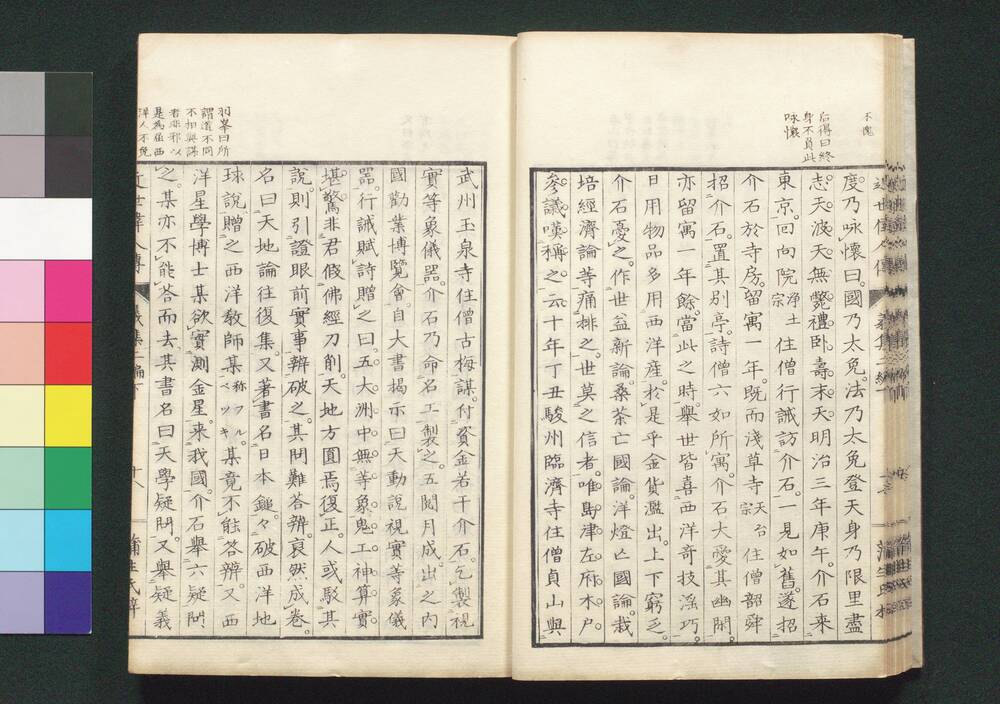 不愧
后得曰終
身不負此
咏懷
度乃咏懷曰。國乃太免。法乃太免登天身乃限里盡
志。天波天。無斃。禮。卧壽。末。天。明治三年庚午。介石來
東京。回向院浄土宗住僧行誡訪介石。一見如舊。遂招
介石於寺房。留寓一年。既而淺草寺天台宗住僧韶舜
招介石。置其別亭。詩僧六如所寓。介石大愛其幽閑。
亦留寓一年餘。當此之時。擧世皆喜西洋奇技淫巧。
日用物品多用西洋産。於是乎金貨濫出。上下窮乏。
介石憂之。作世益新論。桑茶亡國論。洋燈亡國論。栽
培經濟論等。痛排之。世莫之信者。唯島津左府。木戶
參議嘆稱之云。十年丁丑駿州臨濟寺住僧貞山與
武州玉泉寺住僧古梅謀。付資金若干介石。乞製視
實等象儀器。介石乃命名工製之。五閱月成。出之内
國勸業博覽會。自大書揭示曰天動說視實等象儀
器。行誡賦詩贈之曰。五大洲中無等象。鬼工神算實
堪驚。非君假佛經刀削。天地方圓焉復正。人或駁其
說。則引證眼前實事辨破之。其問難答辨。裒然成卷。
名曰天地論往復集。又著書名日本鎚。々破西洋地
球說贈之西洋敎師某稱フルベツキ。某竟不能答辨。又西
洋星學博士某欲實測金星。來我國。介石擧六疑問
之。某亦不能答而去。其書名曰天學疑問。又擧疑義
羽峯曰所
謂道不同
不相與謀
者非邪以
是爲屈西
洋人不免
近世偉人傳
義集二編下
十八
蒲生氏梓